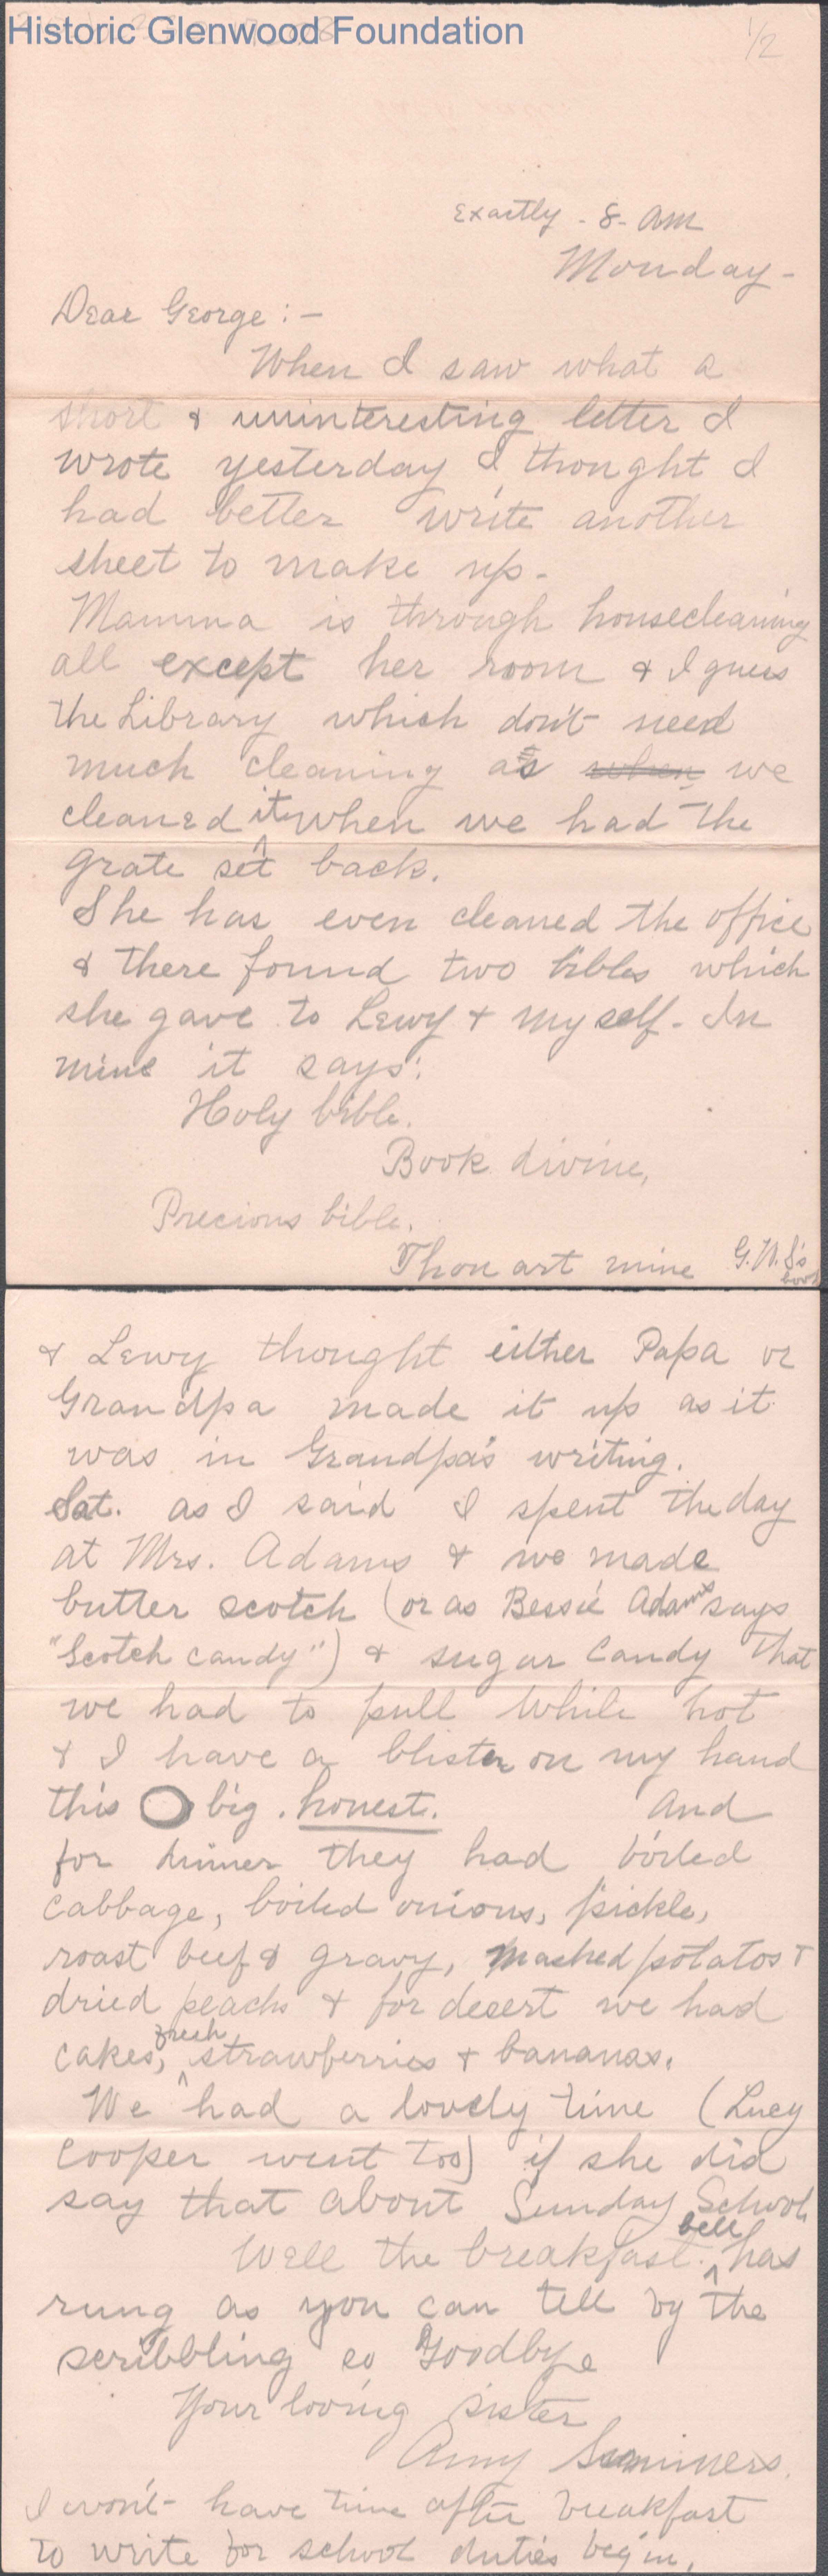 Historic Glenwood Foundation
1/2
Exactly - 8 - am
Monday -
Dear George : -
When I saw what a
short & uninteresting letter I
wrote yesterday I thought I
had better write another
sheet to make up -
Mamma is through housecleaning
all except her room & I guess
the Library which don't need
much cleaning as when we
cleaned it when we had the
grate set back.
She has even cleaned the office
& there found two bibles which
she gave to Lewy & myself - In
mine it says:
Holy bible.
Book divine,
Precious bible.
Thou art mine G.W.S's
book
& Lewy thought either Papa or
Grandpa made it up as it
was in Grandpa's writing.
Sat. as I said I spent the day
at Mrs. Adams & we made
butter scotch (or as Bessie Adams says
"Scotch candy") & sugar candy that
we had to pull while hot
& I have a blister on my hand
this O big . honest. And
for dinner they had boiled
cabbage, boiled onions, pickle,
roast beef & gravy, mashed potatos &
dried peachs & for desert we had
cakes, fresh strawberries & bananas.
We had a lovely time (Lucy
Cooper went too) if she did
say that about Sunday School
Well the breakfast bell has
rung as you can tell by the
scribbling so Goodbye
Your loving sister
Amy Summers.
I won't have time after breakfast
to write for school duties begin.